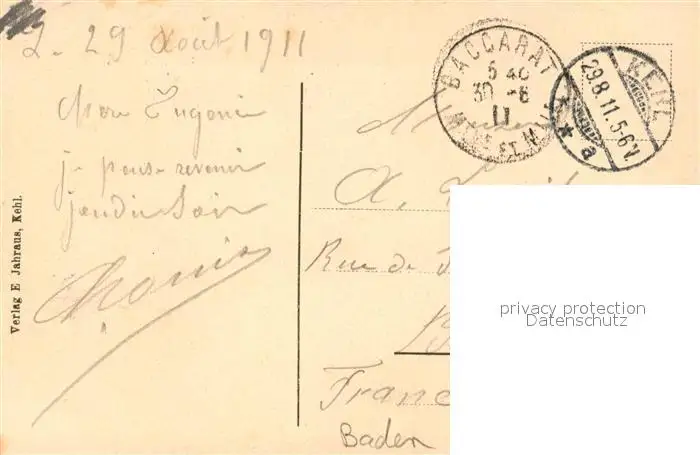 29 Août 1911
Chère Eugénie
je pense revenir
jeudi soir
Verlag E Jahraus, Kehl.
BACCARAT
5 40
30 -8
11
KEHL
29.8.11.5-6V.
* a
A.
Rue de
Franc
Baden
privacy protection
Datenschutz